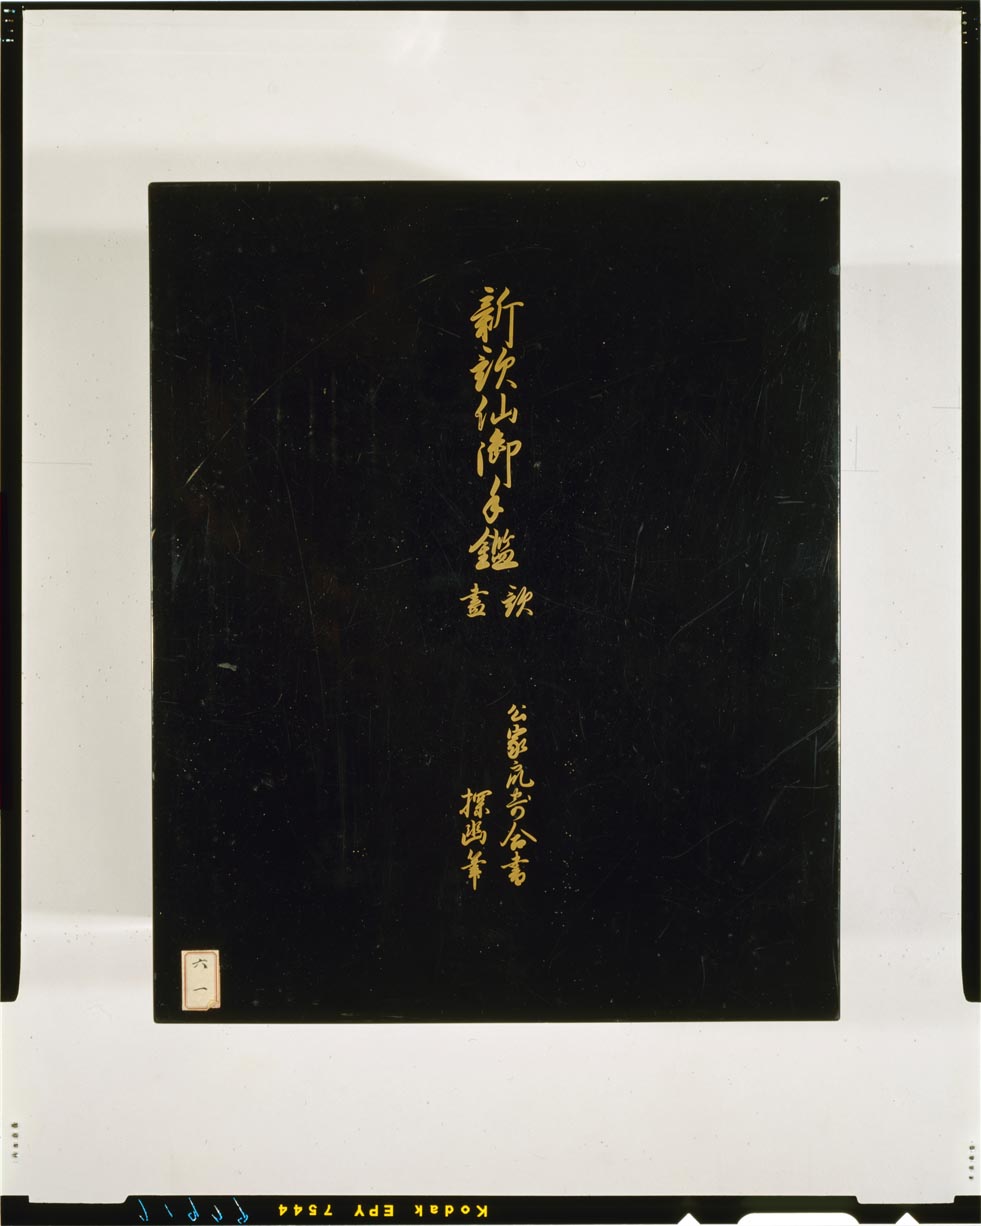 新歌仙御手鑑
歌
画
公家衆寄合書
探幽筆
六
一
Kodak EPY 7544